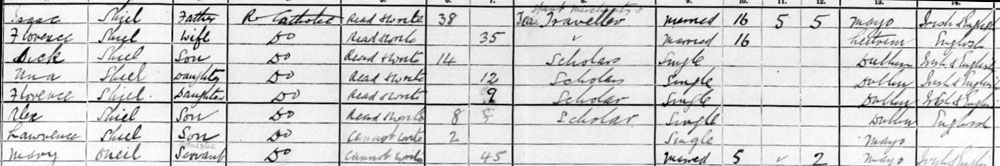 Spirit Merchant &
Isaac Shiel Father R Catholic Read & write 38 Tea Traveller married 16 5 5 mayo Irish & English
Florence Shiel Wife Do Read & write 35 " married 16 Leitrim English
Dick Shiel Son Do Read & write 14 Scholar Single Dublin Irish & English
Una Shiel Daughter Do Read & write 12 Scholar Single Dublin Irish & English
Florence Shiel Daughter Do Read & write 9 Scholar Single Dublin Irish & English
Alex Shiel Son Do Read & write 8 8 Scholar Single Dublin English
Lawrence Shiel Son Do Cannot write 2 Single Mayo
Mary Oneil Servant Do Cannot write 45 married 5 " 2 mayo Irish & English